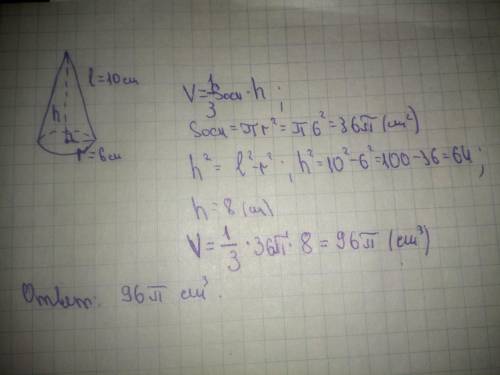 l=10см
h
r=6см
V=1/3 Sосн·h ;
Sосн=πr²=π6²=36π(см²)
h²=l²-r² ; h²=10²-6²=100-36=64 ;
h=8(см)
V=1/3·36π·8=96π(см³)
Ответ: 96π см³.